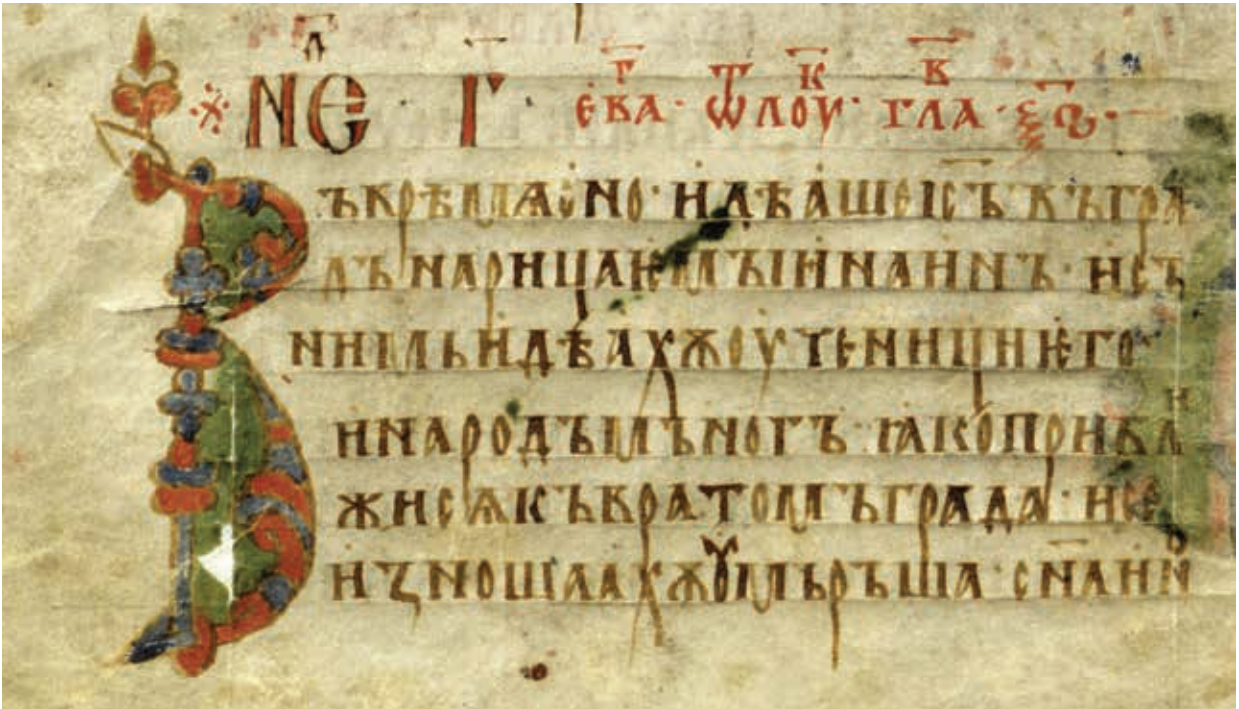 ※ НЕⷣ · Г҃ · ЕВАⷢ · ѾЛОУⷦ · ГЛАⷡ · Ѯ҃З ·
ВЪВРѢМѦОНО · ИДѢАШЕІС҃ЪВЪГРА
ДЪНАРИЦАѤМЪІИНАИНЪ · ИСЪ
НИМЬИДѢАХѪОУЧЕНИЦИѤГО
ИНАРОДЪМЪНОГЪ · ꙖКОПРИБЛИ
ЖИСѦКЪВРАТОМЪГРАДА · ИСЕ
ИЗНОШААХѪОУМЬРЪША · СН҃АИН